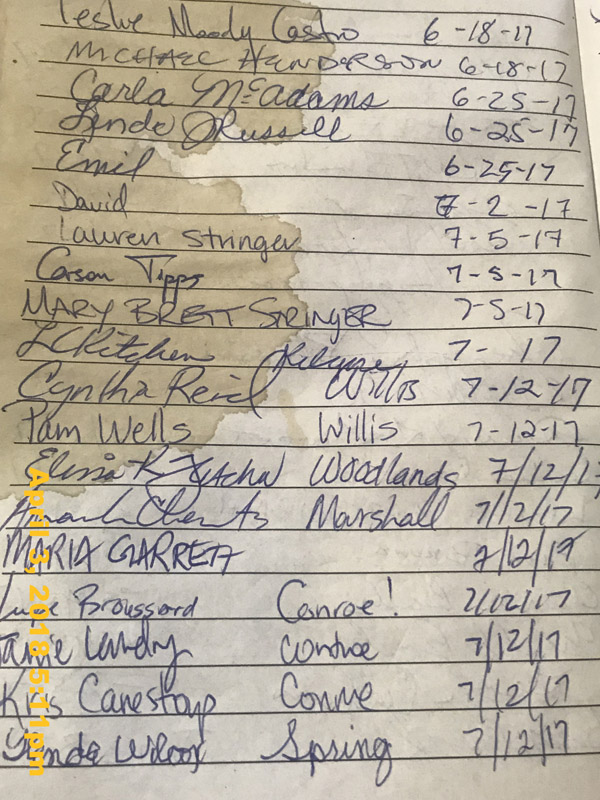 Leslie Moody Castro 6-18-17
MICHAEL HENDERSON 6-18-17
Carla McAdams 6-25-17
Lynda Russell 6-25-17
Emil 6-25-17
David 7-2-17
Lauren Stringer 7-5-17
Carson Tipps 7-5-17
MARY BRETT STRINGER 7-5-17
LCKitchen Kilgore 7- 17
Cynthia Reid Willis 7-12-17
Pam Wells Willis 7-12-17
Elissa K. Woodlands 7/12/1
Marshall 7/12/17
MARIA GARRETT 7/12/17
Broussard Conroe! 7/12/17
Jamie Landry Conroe 7/12/17
Kris Conroe 7/12/17
Lynda Wilcox Spring 7/12/17
April 3, 2018 5:11pm